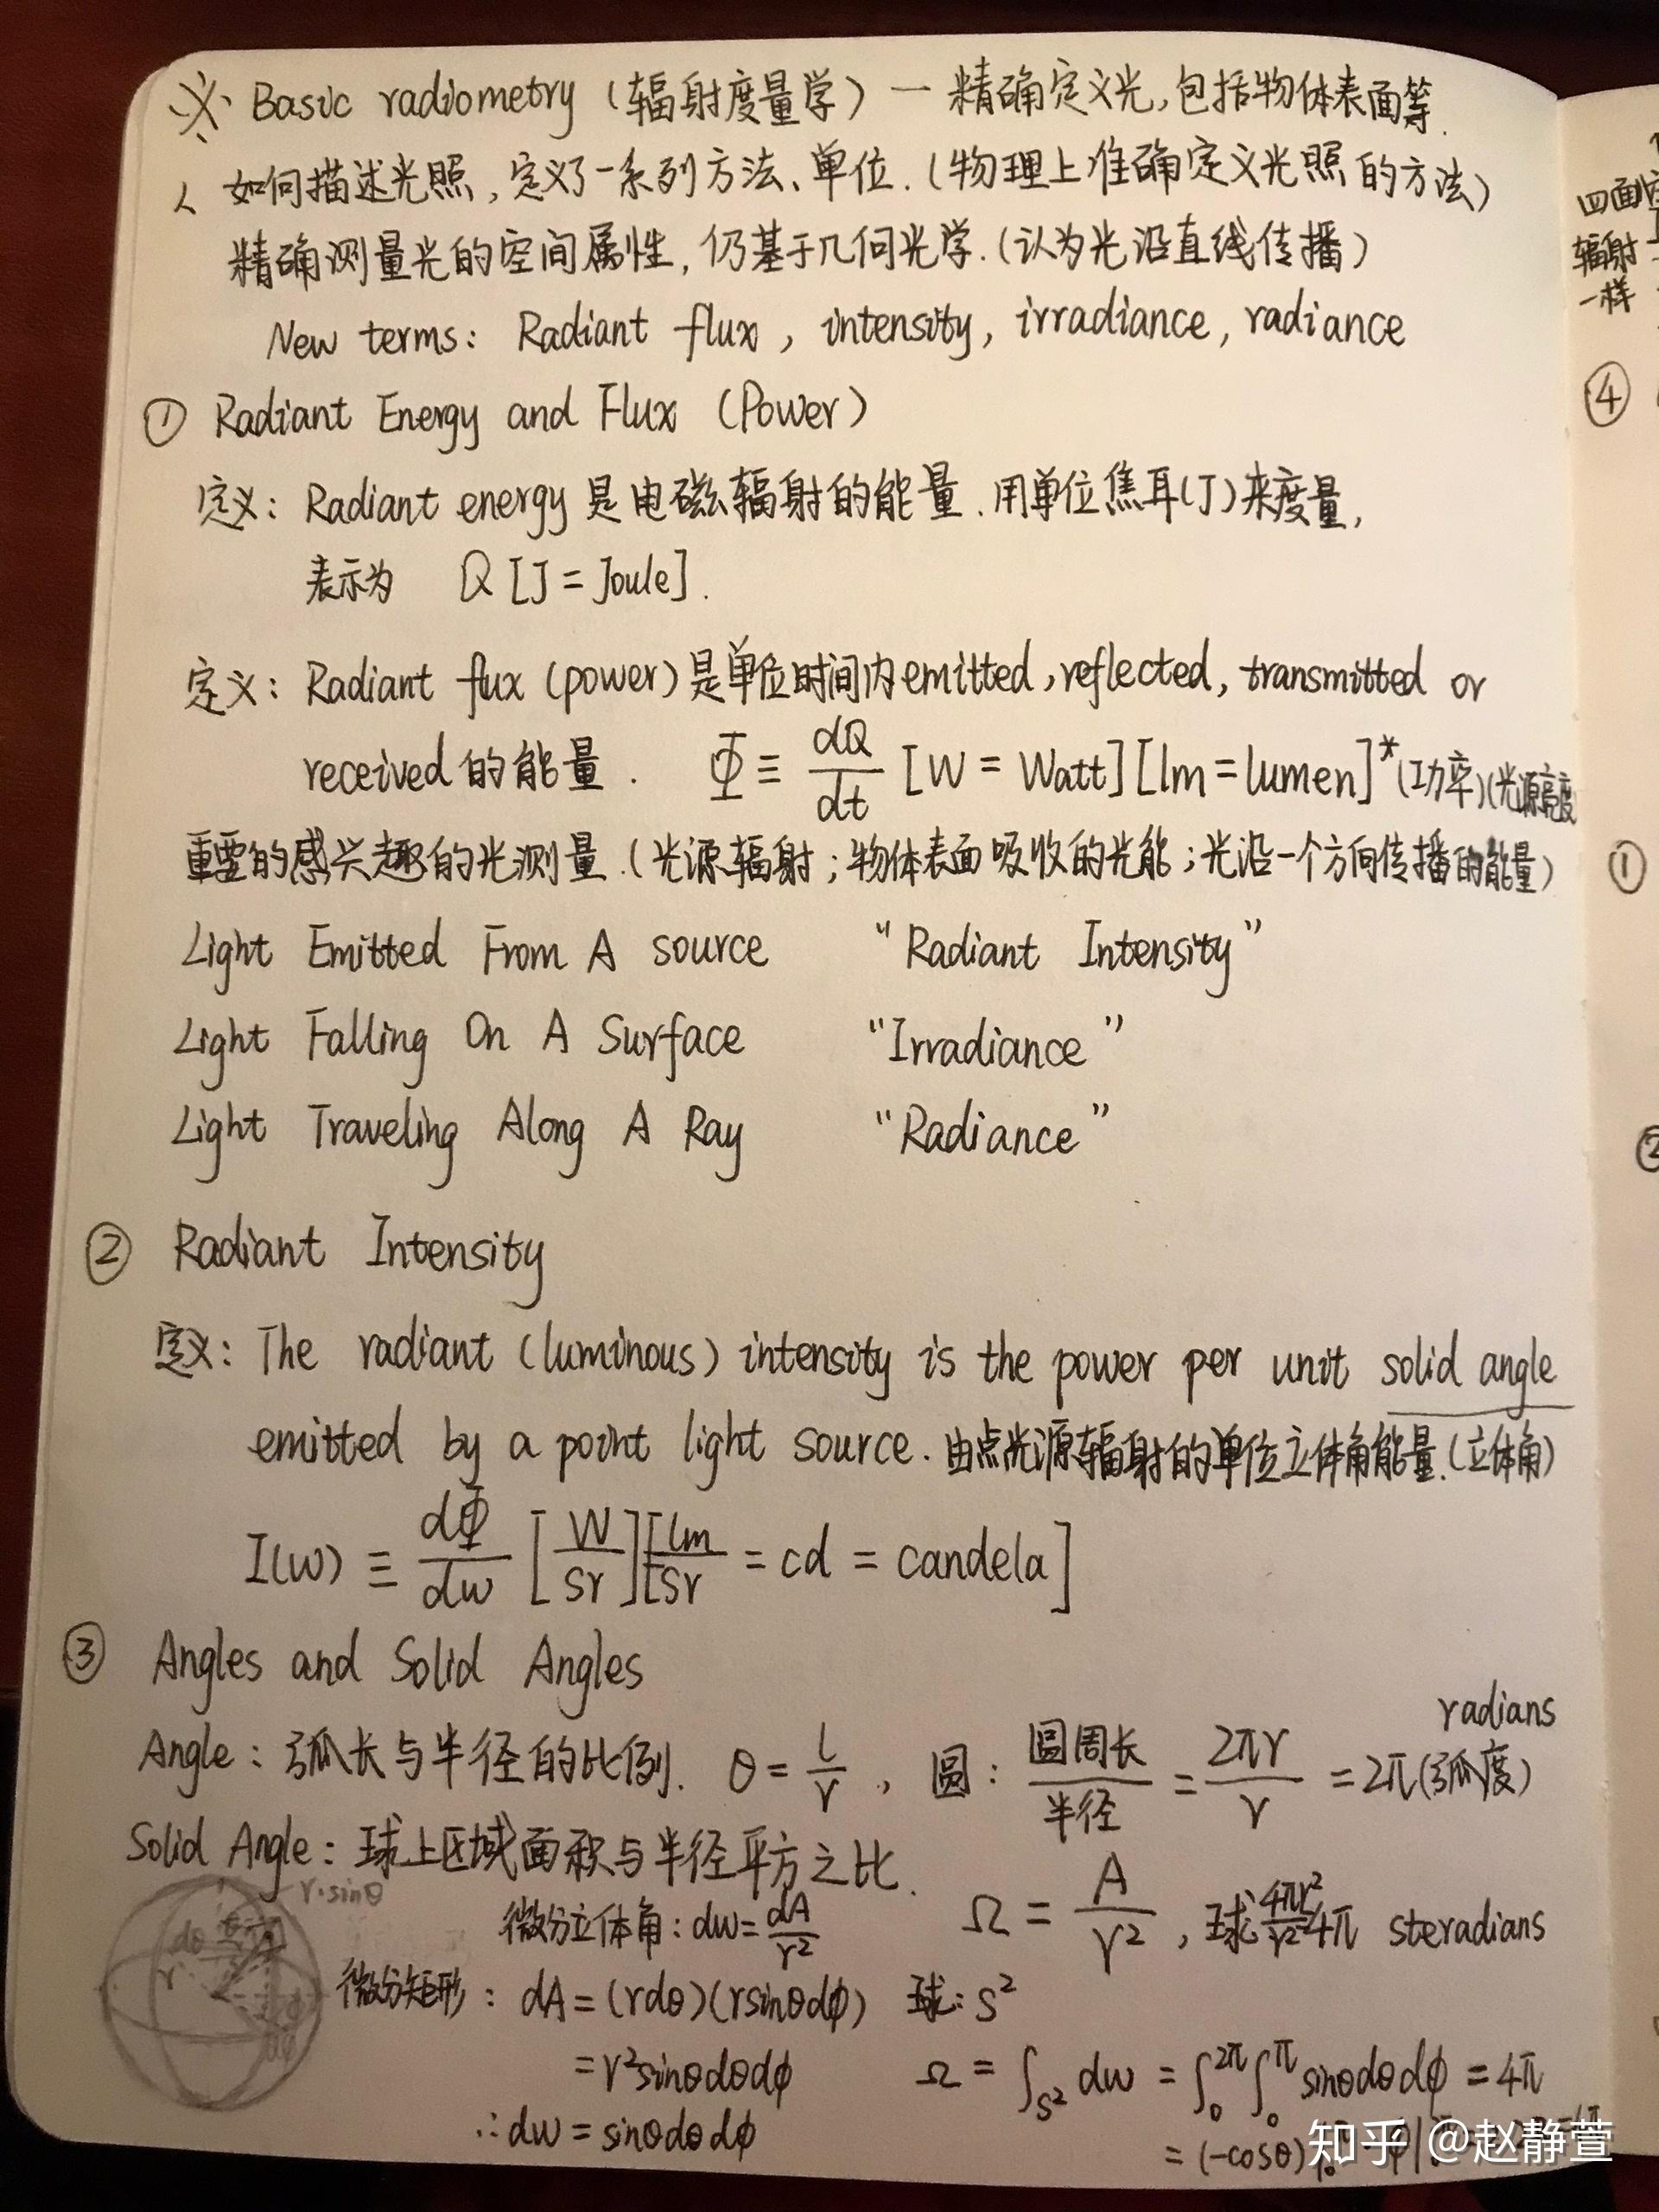 ※ Basic radiometry (辐射度量学) — 精确定义光,包括物体表面等.
如何描述光照,定义了一系列方法、单位.(物理上准确定义光照的方法)
精确测量光的空间属性,仍基于几何光学.(认为光沿直线传播)
New terms: Radiant flux, intensity, irradiance, radiance
① Radiant Energy and Flux (Power)
定义: Radiant energy 是电磁辐射的能量.用单位焦耳(J)来度量,
表示为 Q [J = Joule].
定义: Radiant flux (power) 是单位时间内 emitted, reflected, transmitted or
received 的能量. Φ ≡ dQ/dt [W = Watt] [lm = lumen]* (功率)(光源亮度
重要的感兴趣的光测量.(光源辐射;物体表面吸收的光能;光沿一个方向传播的能量)
Light Emitted From A source "Radiant Intensity"
Light Falling On A Surface "Irradiance"
Light Traveling Along A Ray "Radiance"
② Radiant Intensity
定义: The radiant (luminous) intensity is the power per unit solid angle
emitted by a point light source. 由点光源辐射的单位立体角能量.(立体角)
I(w) ≡ dΦ/dw [W/sr] [lm/sr = cd = candela]
③ Angles and Solid Angles
radians
Angle: 弧长与半径的比例. θ = l/r , 圆: 圆周长/半径 = 2πr/r = 2π(弧度)
Solid Angle: 球上区域面积与半径平方之比.
r·sinθ
微分立体角: dw = dA/r² Ω = A/r² , 球 4πr²/r² 4π steradians
dθ
r
微分矩形: dA = (rdθ)(rsinθdϕ) 球: S²
dϕ
= r²sinθdθdϕ Ω = ∫_S² dw = ∫₀^2π ∫₀^π sinθdθdϕ = 4π
∴ dw = sinθdθdϕ
= (-cosθ)
知乎 @赵静萱
四面
辐射
一样
④
①
②